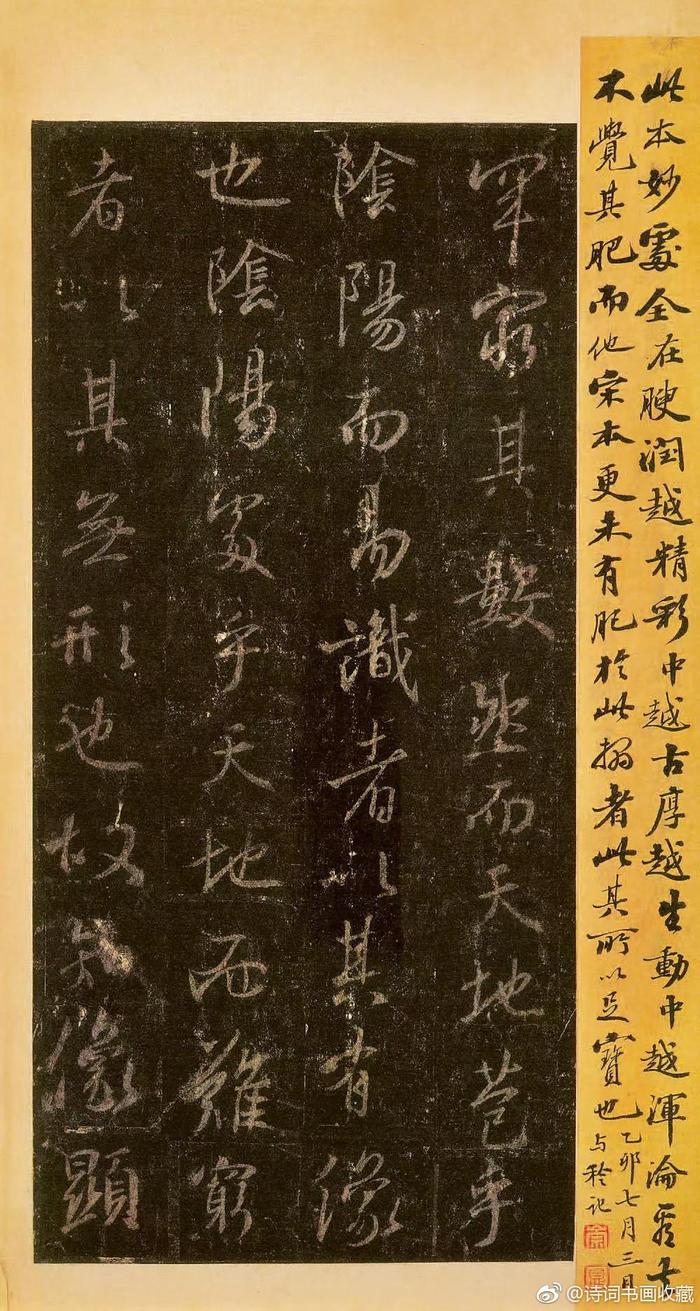 此本妙處全在腴潤越精彩中越古厚越生動中越渾淪看去
不覺其肥而他宋本更未有肥於此搨者此其所以足寶也
乙卯七月三日
与 记
罕窮其數然而天地苞乎
陰陽而易識者以其有像
也陰陽處乎天地而難窮
者以其無形也故知像顯
@诗词书画收藏